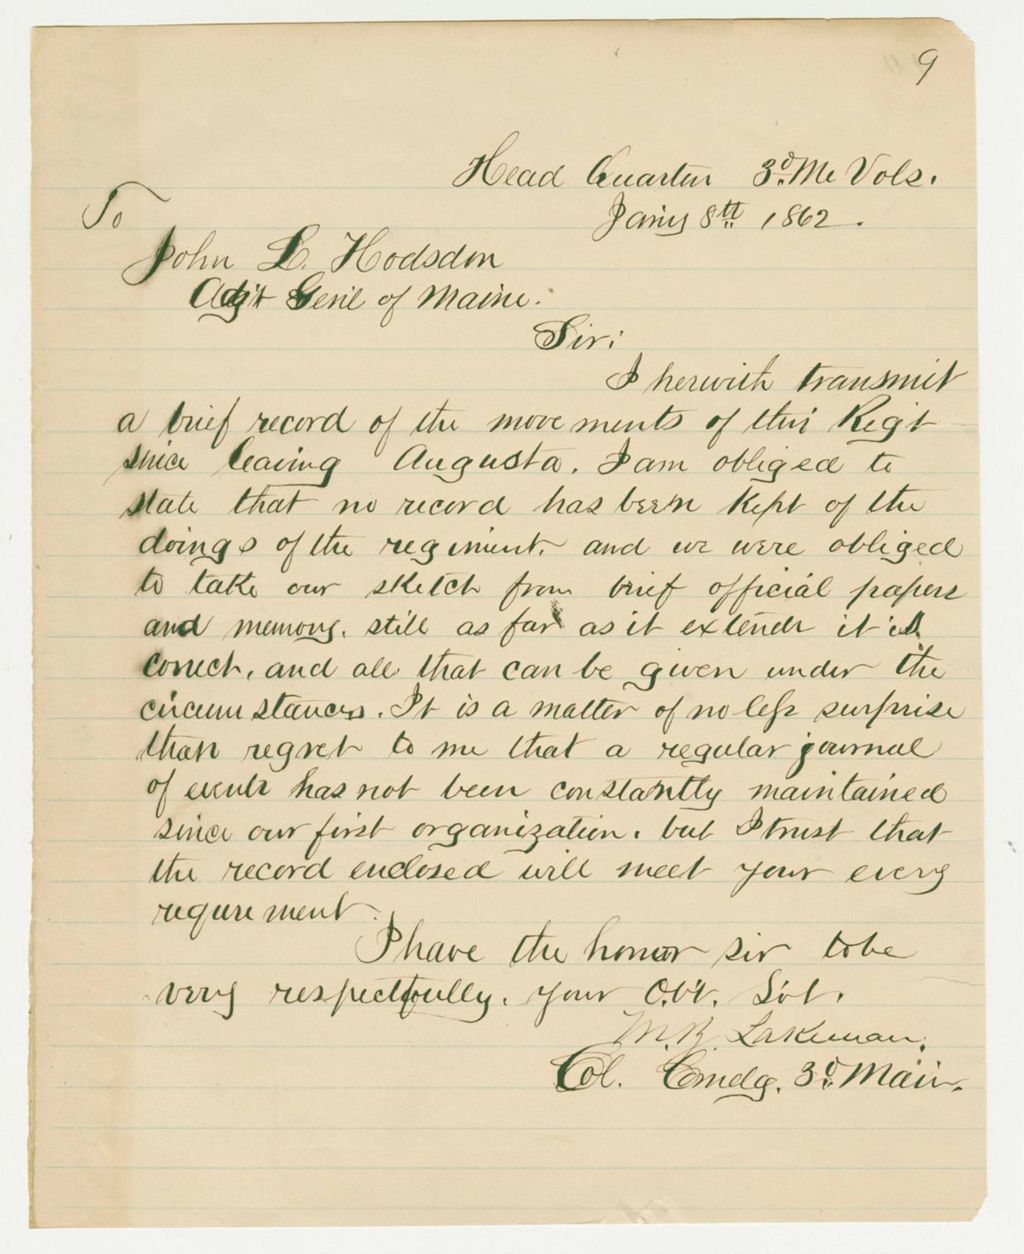 9
Head Quarters 3d. Me Vols.
Jan'y 8th 1862.
To
John L. Hodsdon
Adj't Gen'l of Maine.
Sir:
I herwith transmit
a brief record of the movements of this Regt
since leaving Augusta. I am obliged to
state that no record has been kept of the
doings of the regiment. and we were obliged
to take our sketch from brief official papers
and memory. still as far as it extends it is
correct, and all that can be given under the
circumstances. It is a matter of no less surprise
than regret to me that a regular journal
of events has not been constantly maintained
since our first organization. but I trust that
the record enclosed will meet your every
requirement.
I have the honor sir to be
very respectfully. your Obt. Svt.
M.B. Lakeman.
Col. Cmdg. 3d. Main.